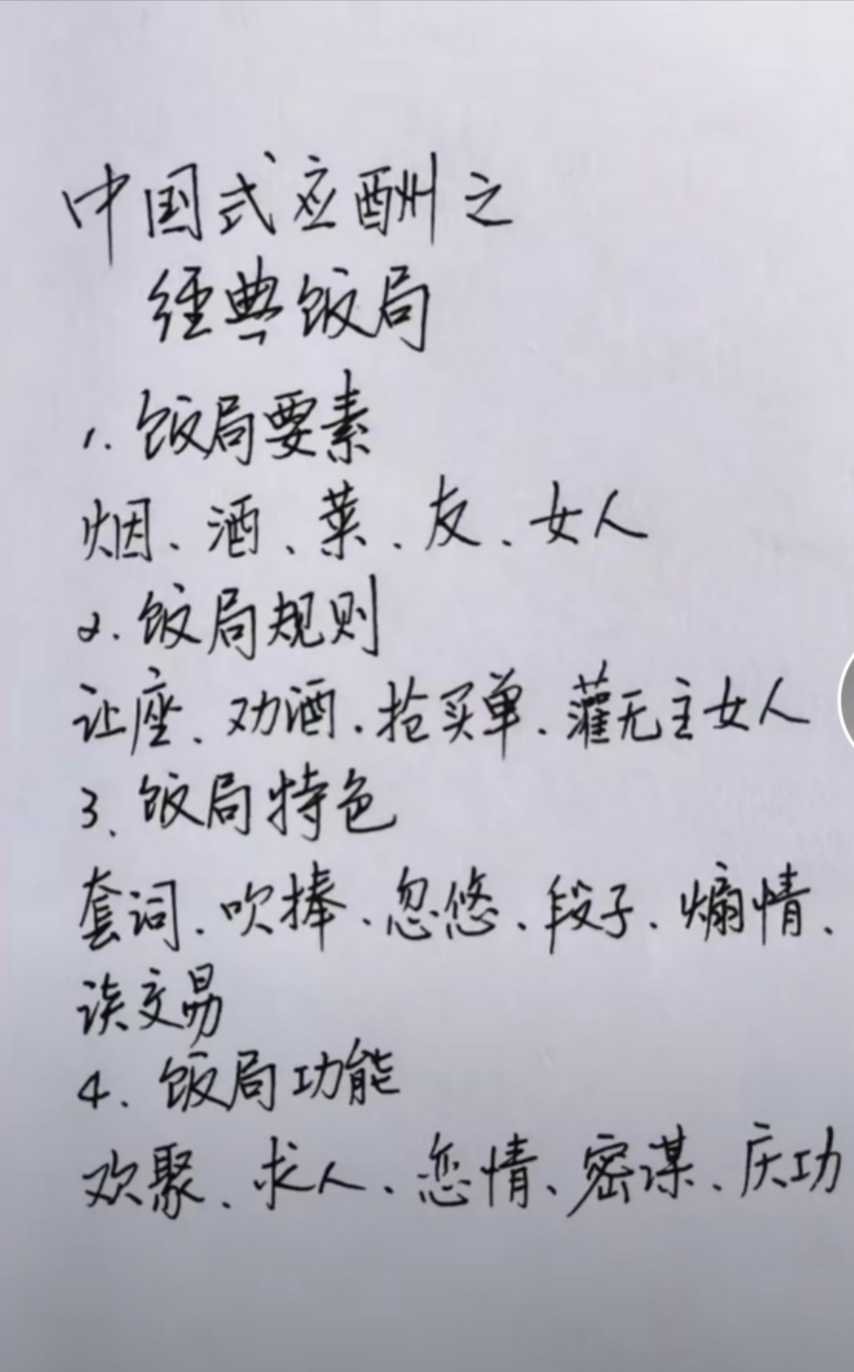 中国式应酬之
经典饭局
1. 饭局要素
烟、酒、菜、友、女人
2. 饭局规则
让座、劝酒、抢买单、灌无主女人
3、饭局特色
套词、吹捧、忽悠、段子、煽情、
谈交易
4. 饭局功能
欢聚、求人、恋情、密谋、庆功